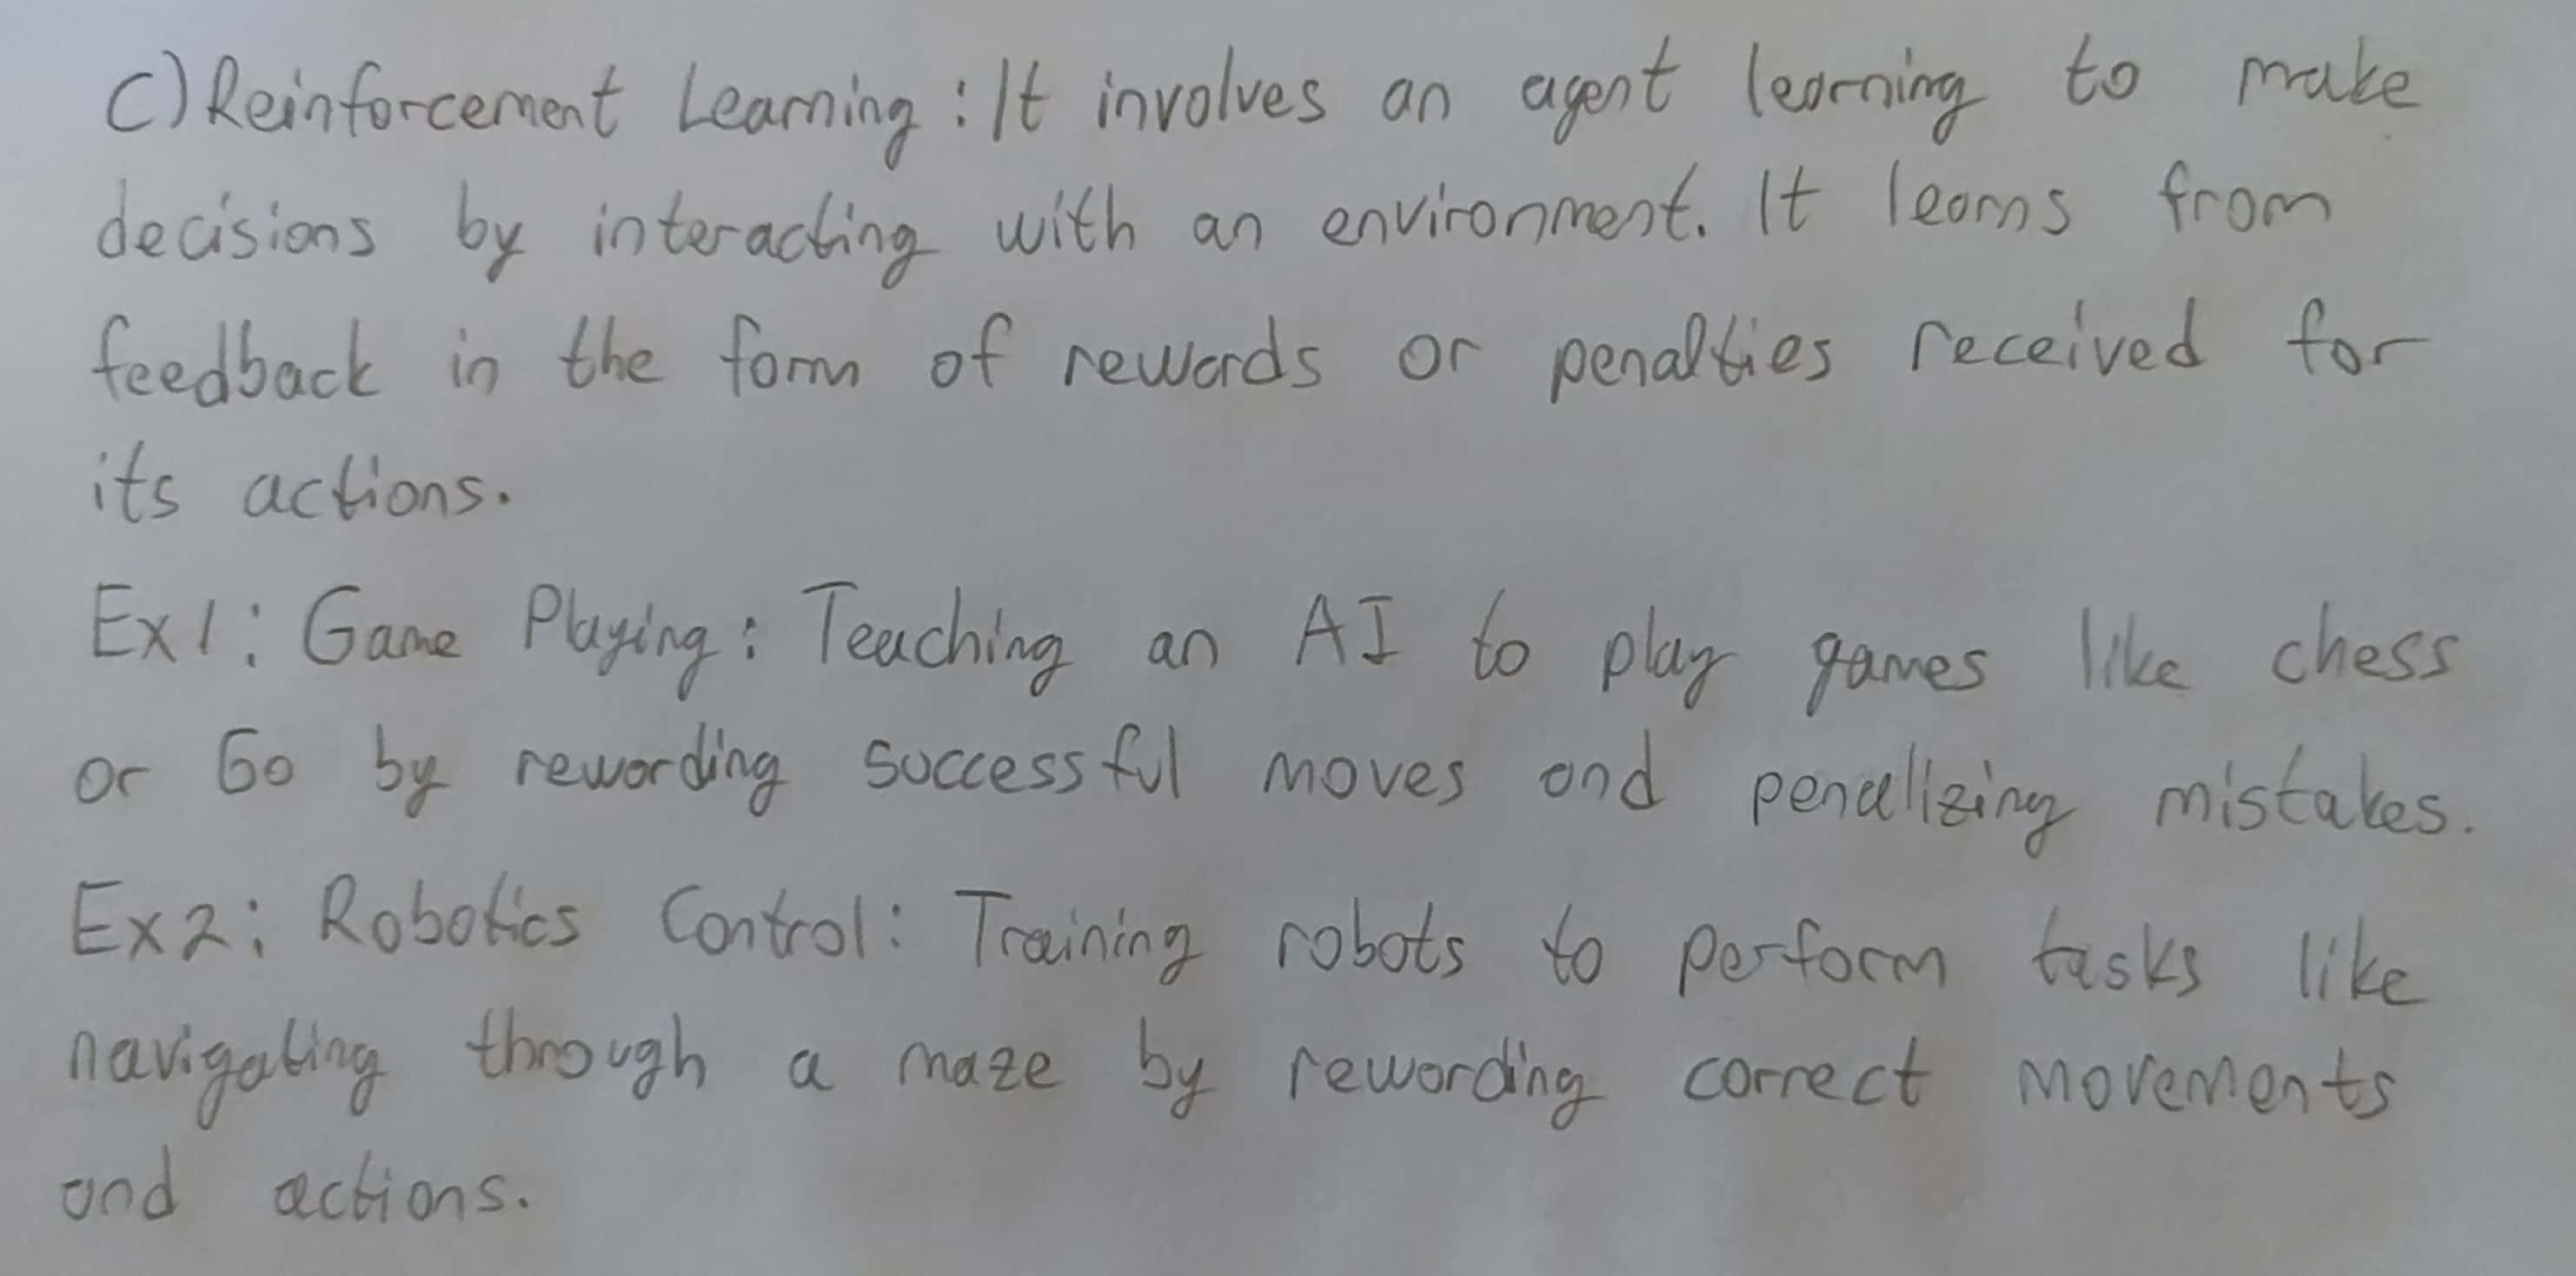 C) Reinforcement Learning : It involves an agent learning to make
decisions by interacting with an environment. It learns from
feedback in the form of rewards or penalties received for
its actions.
Ex1: Game Playing: Teaching an AI to play games like chess
or Go by rewarding successful moves and penalizing mistakes.
Ex2: Robotics Control: Training robots to perform tasks like
navigating through a maze by rewarding correct movements
and actions.